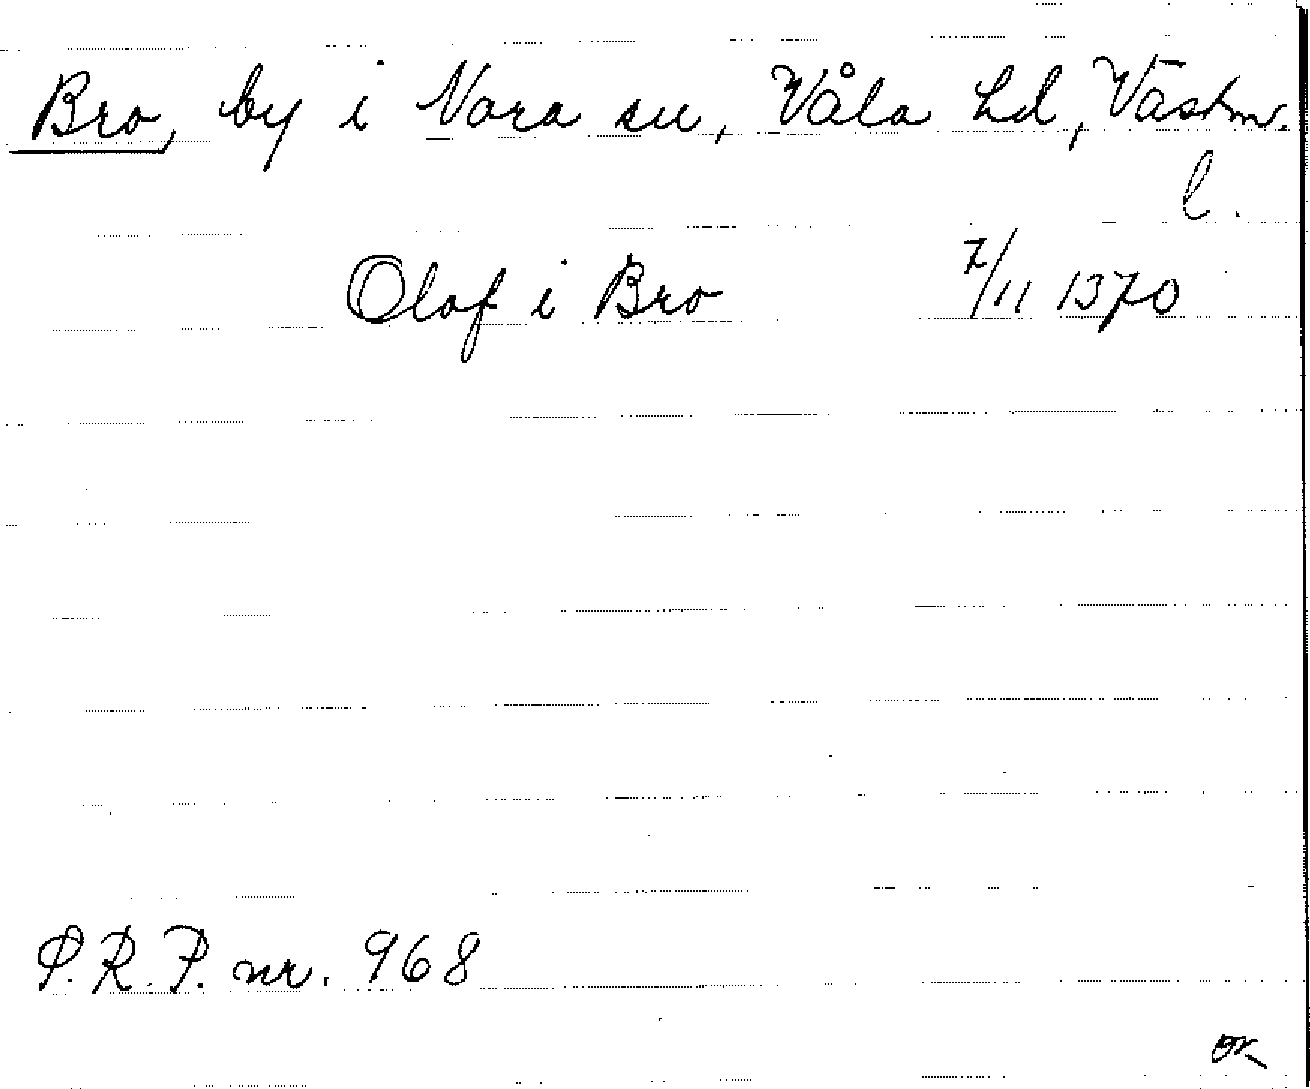 Bro, by i Nora sn, Våla hd, Västm.
l.
Olof i Bro 7/11 1370
P.R.P. nr. 968